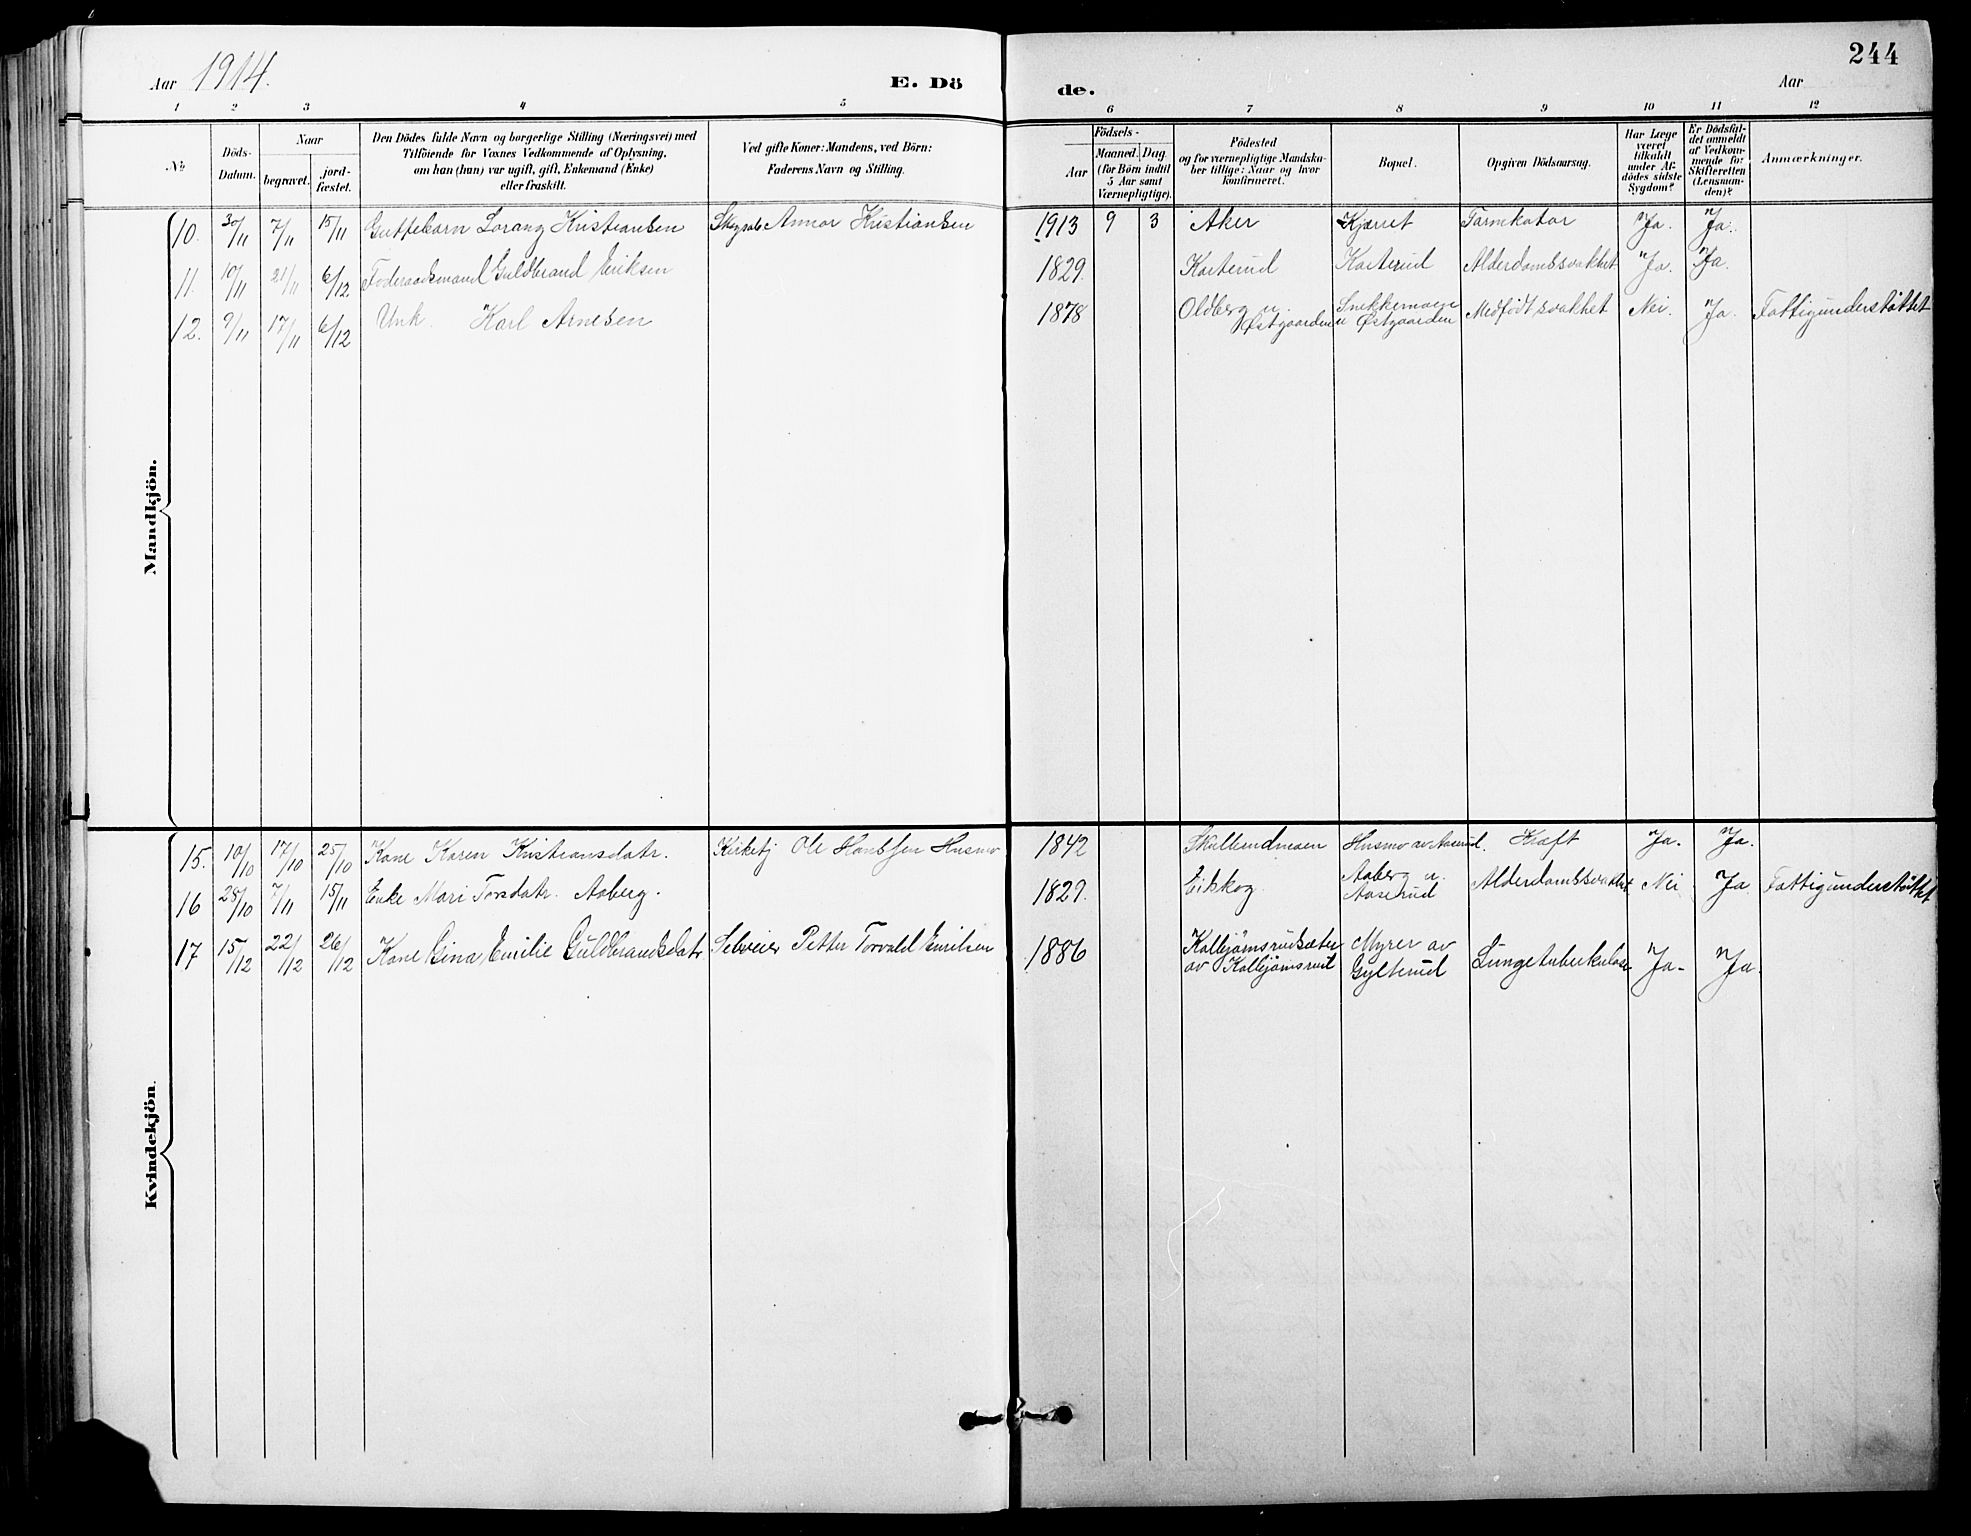 244
Aar 1914. E. Dö de. Aar
1 2 3 4 5 6 7 8 9 10 11 12
No.
Döds-
Datum.
Naar
begravet.
jord-
fæstet.
Den Dödes fulde Navn og borgerlige Stilling (Næringsvei) med
Tilföiende for Voxnes Vedkommende af Oplysning,
om han (hun) var ugift, gift, Enkemand (Enke)
eller fraskilt.
Ved gifte Koner: Mandens, ved Börn:
Faderens Navn og Stilling.
Födsels-
Aar
Maaned. Dag.
(for Börn indtil
5 Aar samt
Værnepligtige).
Födested
og for værnepligtige Mandska-
ber tillige: Naar og hvor
konfirmeret.
Bopæl.
Opgiven Dödsaarsag.
Har Læge
været
tilkaldt
under Af-
dödes sidste
Sygdom?
Er Dödsfal-
det anmeldt
af Vedkom-
mende for
Skifteretten
(Lensman-
den)?
Anmærkninger.
Mandkjön.
10. 30/11 7/11 15/11 Guttebarn Lorang Kristiansen Annar Kristiansen 1913 9 3 Aker Kjærret Tarmkatar Ja. Ja.
11. 10/11 21/11 6/12 Föderaadsmand Guldbrand Eriksen 1829. Karterud Karterud Alderdomssvakhet Ja. Ja.
12. 9/11 17/11 6/12 Unk. Karl Arnesen 1878 Oldberg u. Snekkermoen
Østgaarden u Østgaarden Medfödt svakhet Nei. Ja. Fattigunderstöttet
Kvindekjön.
15. 10/10 17/10 25/10 Kone Karen Kristiansdatr. Kirketj Ole Hanssen Husmo 1842 Skullerudmoen Husmo av Aaserud. Kræft Ja. Ja.
16 28/10 7/11 15/11 Enke Mari Torsdatr. Aaberg. 1829. Eidskog. Aaberg u.
Aaserud Alderdomssvakhet Nei Ja Fattigunderstöttet
17 15/12 22/12 26/12 Kone Gina Emilie Guldbrandsdatr Selveier Petter Torvald Emilsen 1886 Kolbjørnsrudsæter Myrer av
av Kolbjørnsrud Gylterud Lungetuberkulose Ja. Ja.